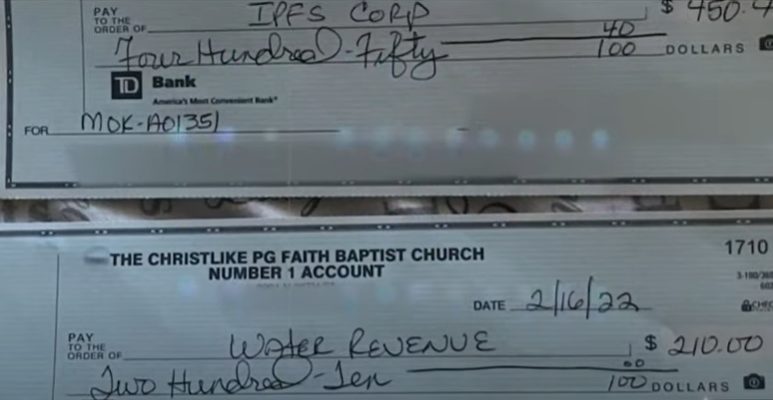 PAY
TO THE
ORDER OF IPFS CORP $ 450.4
Four Hundred - Fifty 40/100 DOLLARS
TD Bank
America's Most Convenient Bank®
FOR MOK-A01351
THE CHRISTLIKE PG FAITH BAPTIST CHURCH 1710
NUMBER 1 ACCOUNT
DATE 2/16/22
PAY
TO THE
ORDER OF WATER REVENUE $ 210.00
Two Hundred - Ten 00/100 DOLLARS